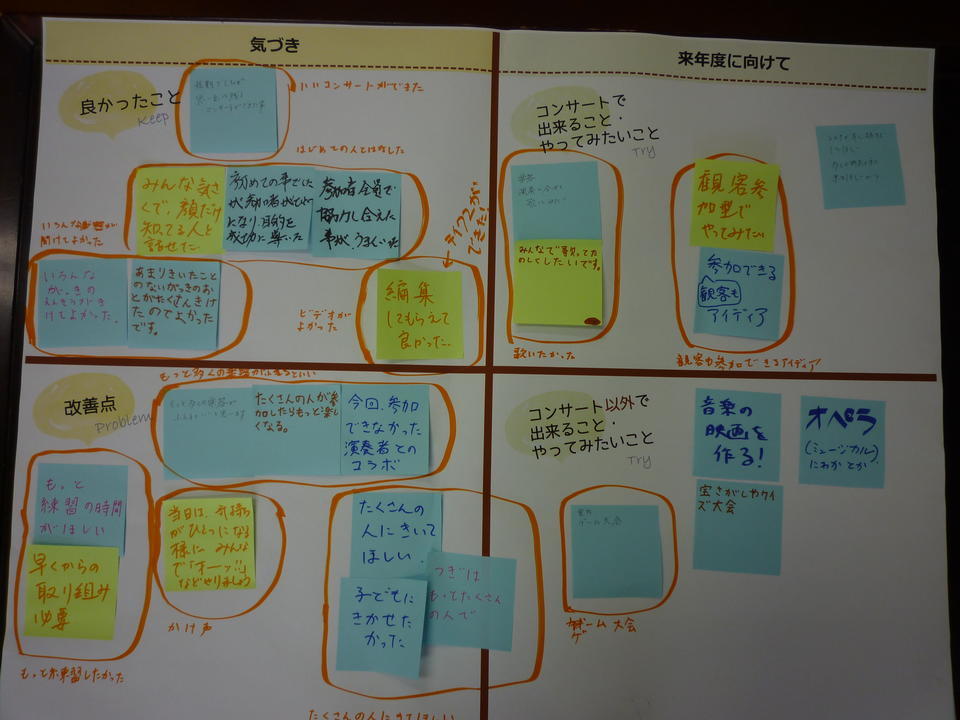 気づき
良かったこと
Keep
いいコンサートができた
はじめての人とはなした
みんな気さ
くで、顔だけ
知てる人と
話せてた
初めての事でした
が、参加者がひとつ
になり、目的を
成功に導いた
参加者全員で
協力し合えた
事が、うまくいった
聞けてよかった
いろんな
がっきの
けてよかった。
あまりきいたこと
のないがっきのお
とがたくさんきけ
たのでよかった
です。
できた!
ビデオが
よかった
編集
してもらえて
良かった
来年度に向けて
コンサートで
出来ること・
やってみたいこと
Try
みんなで歌ってた
のしくしたいです。
歌いたかった
観客参
加型で
やってみたい
参加できる
観客も
アイディア
観客も参加できるアイディア
改善点
Problem
たくさんの人が参
加したらもっと楽し
くなる。
今回、参加
できなかった
演奏者との
コラボ
もっと
練習の時間
がほしい
早くからの
取り組み
必要
もっと練習したかった
当日は、気持ち
がひとつになる
様に みんな
で「オーッ!!」
などやりましょう
かけ声
たくさんの
人にきいて
ほしい.
子どもに
きかせた
かった
つぎは
もっとたくさん
の人で
たくさんの人にきてほしい
コンサート以外で
出来ること・
やってみたいこと
Try
音楽の
映画を
作る!
オペラ
(ミュージカル)
にわか とか。
宝さがしやクイ
ズ大会
室内
ゲーム大会
ゲーム大会